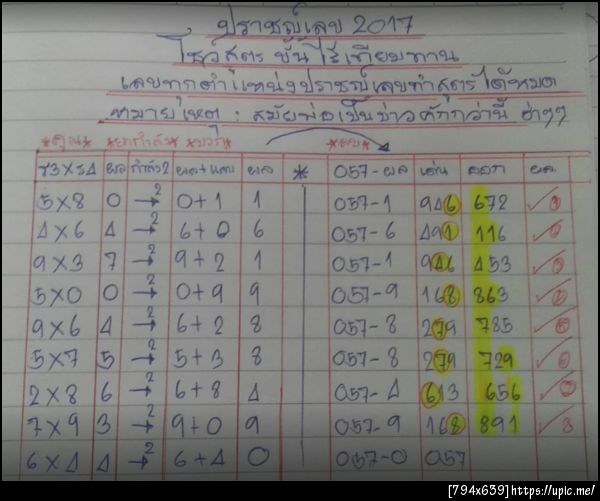 ปราชญ์เลข 2017
โชว์สูตร ขั้นไร้เทียมทาน
เลขทุกตำแหน่งปราชญ์เลขทำสูตรได้หมด
หมายเหตุ : สมัยพ่อเป็นข่าวดักกว่านี้ ฮ่าๆๆ
*คูณ* *ยกกำลัง* *บวก* *ลบ*
ร3×ร4 ผล กำลัง2 ผล+แถบ ผล * 057-ผล เด่น ออก ผล
5×8 0 →2 0+1 1 057-1 946 672 ✓
4×6 4 →2 6+0 6 057-6 491 116 ✓
9×3 7 →2 9+2 1 057-1 946 453 ✓
5×0 0 →2 0+9 9 057-9 168 863 ✓
9×6 4 →2 6+2 8 057-8 279 785 ✓
5×7 5 →2 5+3 8 057-8 279 729 ✓
2×8 6 →2 6+8 4 057-4 613 656 ✓
7×9 3 →2 9+0 9 057-9 168 891 ✓
6×4 4 →2 6+4 0 057-0 057
[794x639]https://upic.me/